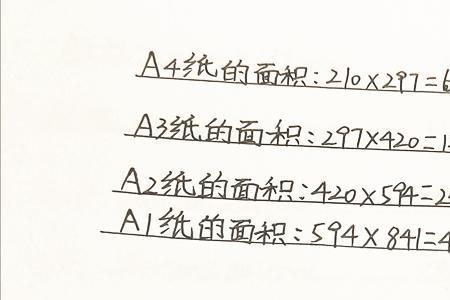 A4纸的面积:210×297=6
A3纸的面积:297×420=1
A2纸的面积:420×594=2
A1纸的面积:594×841=4